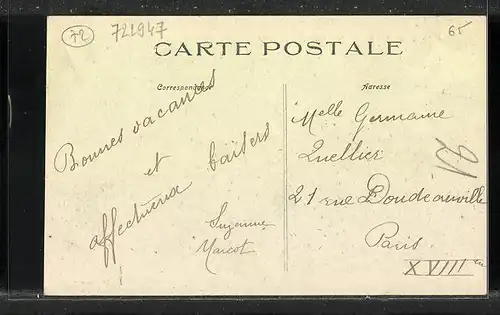 72
721947
65
CARTE POSTALE
Correspondance
Adresse
Bonnes vacances
et
affectueux baisers
Suzanne
Marcot
Melle Germaine
Quellier
21 rue Doudeauville
Paris
XVIIIem
21